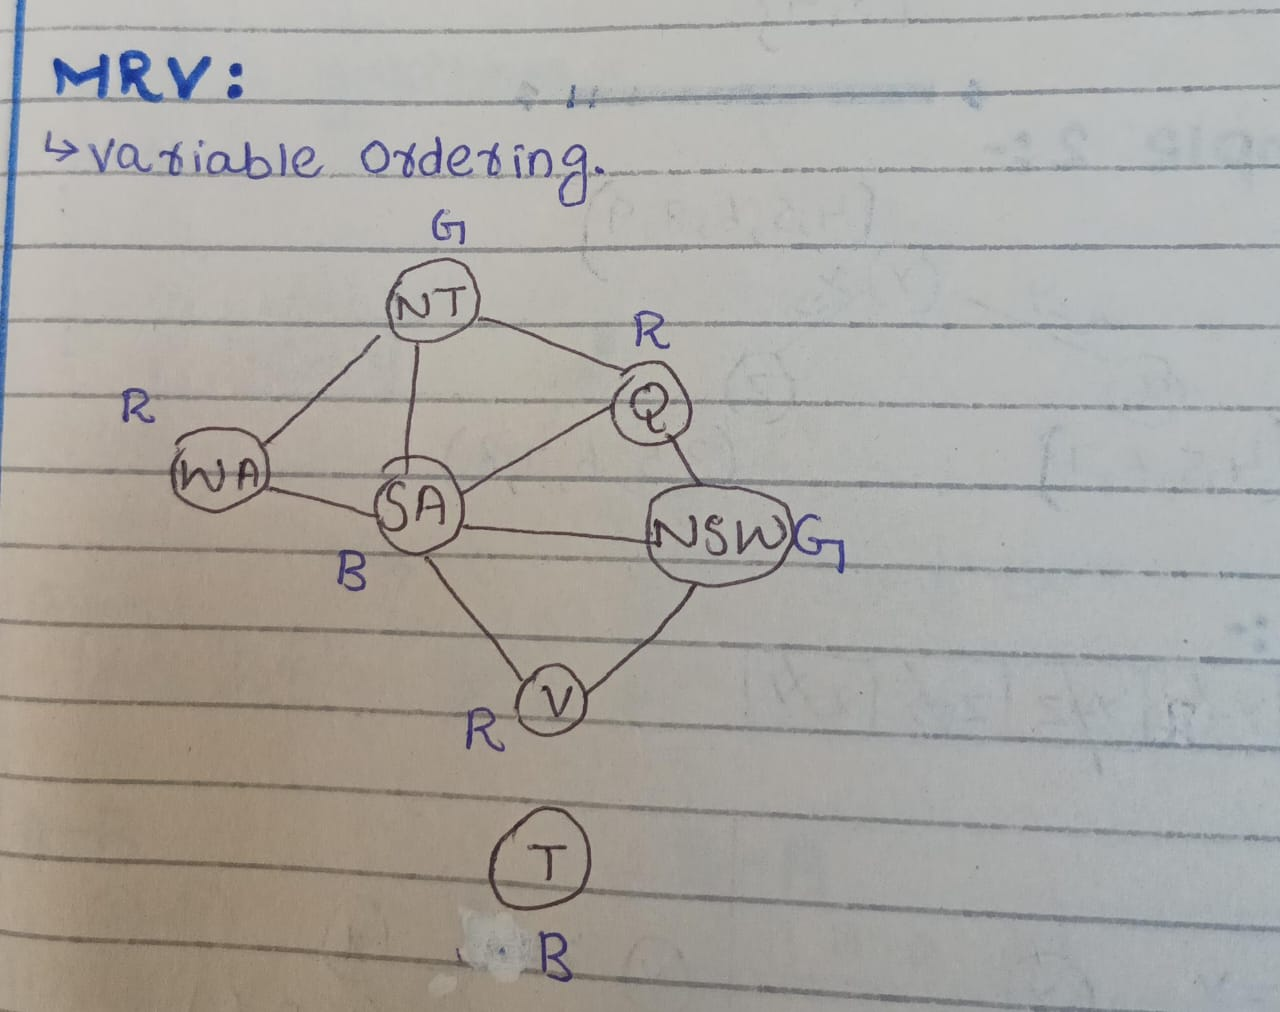 MRV:
↳ variable ordering.
G
NT
R
Q
R
WA
SA
NSW G
B
V
R
T
B